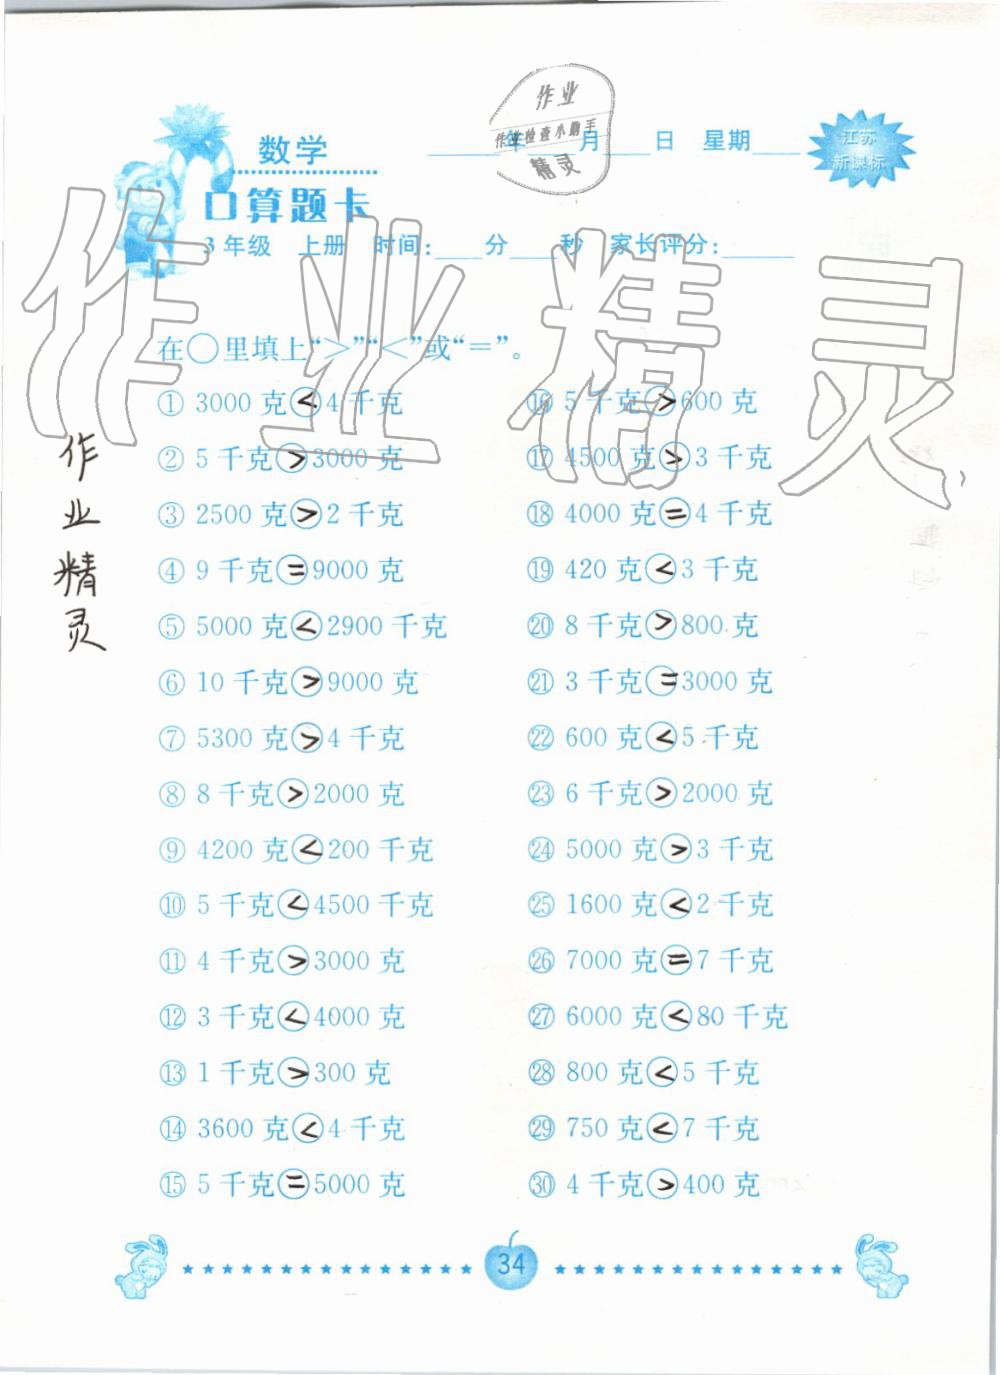 作业
作业检查小助手
精灵
数学
年 月 日 星期
江苏
新课标
口算题卡
3年级 上册 时间: 分 秒 家长评分:
作业精灵
在○里填上“>”“<”或“=”。
① 3000 克<4 千克
② 5 千克>3000 克
③ 2500 克>2 千克
④ 9 千克=9000 克
⑤ 5000 克<2900 千克
⑥ 10 千克>9000 克
⑦ 5300 克>4 千克
⑧ 8 千克>2000 克
⑨ 4200 克<200 千克
⑩ 5 千克<4500 千克
⑪ 4 千克>3000 克
⑫ 3 千克<4000 克
⑬ 1 千克>300 克
⑭ 3600 克<4 千克
⑮ 5 千克=5000 克
⑯ 5 千克>600 克
⑰ 4500 克>3 千克
⑱ 4000 克=4 千克
⑲ 420 克<3 千克
⑳ 8 千克>800 克
㉑ 3 千克=3000 克
㉒ 600 克<5 千克
㉓ 6 千克>2000 克
㉔ 5000 克>3 千克
㉕ 1600 克<2 千克
㉖ 7000 克=7 千克
㉗ 6000 克<80 千克
㉘ 800 克<5 千克
㉙ 750 克<7 千克
㉚ 4 千克>400 克
作
业
精
灵
34